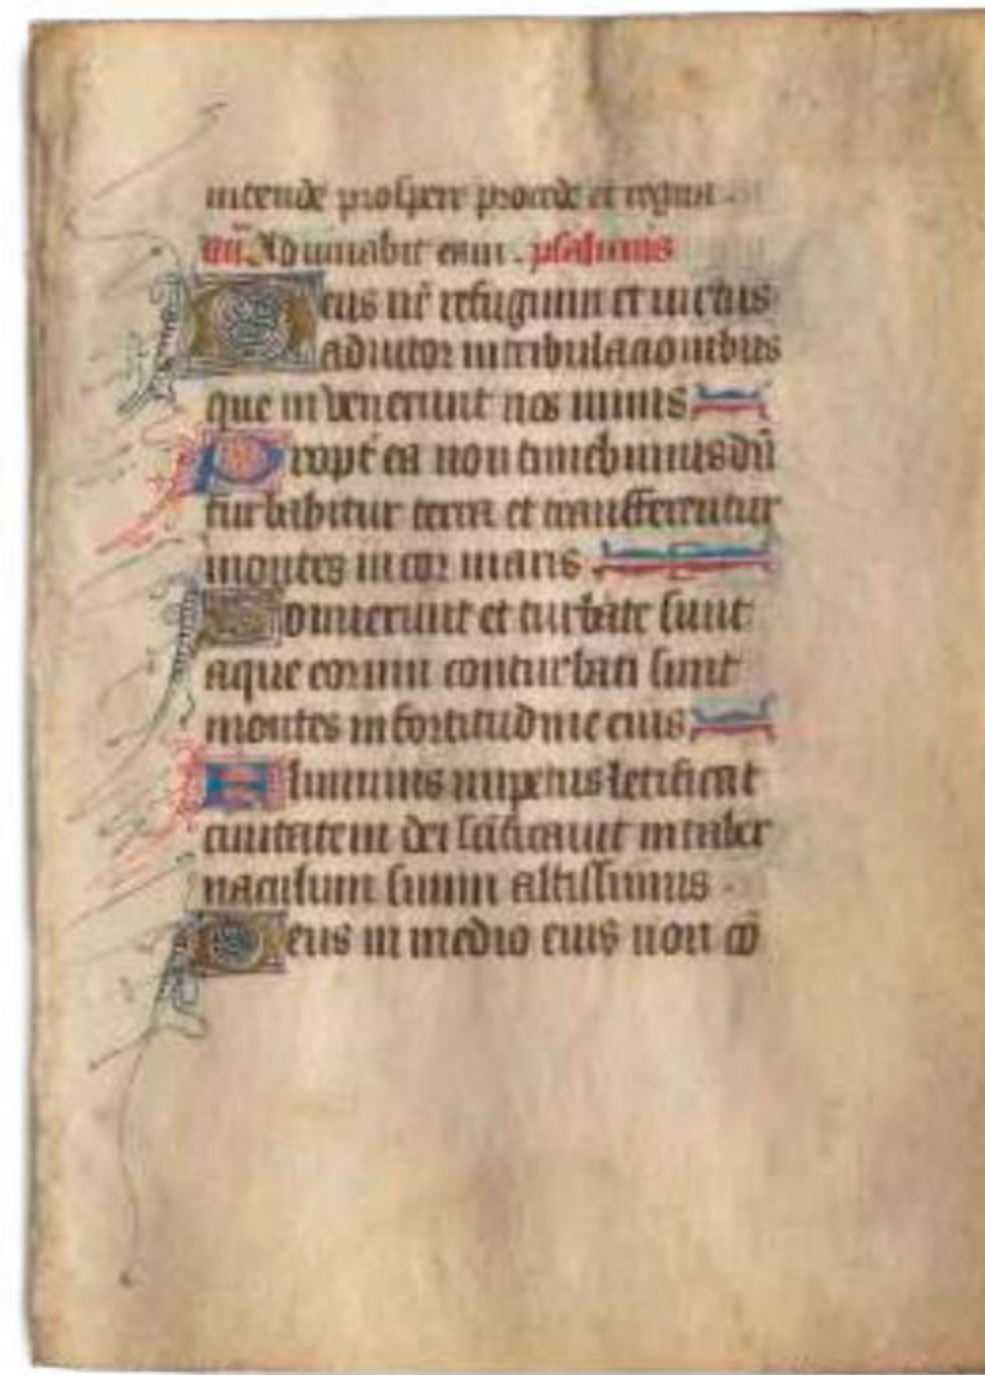 intende prospere procede et regna.
añ. Adiuuabit eam. psalmus
Deus nr̄ refugium et uirtus
adiutor in tribulacionibus
que inuenerunt nos nimis
Propt̄ ea non timebimus dū
turbabitur terra et transferentur
montes in cor maris.
Sonuerunt et turbate sunt
aque eorum conturbati sunt
montes in fortitudine eius
Fluminis impetus letificat
ciuitatem dei sc̄ificauit in taber
naculum suum altissimus.
Deus in medio eius non cō